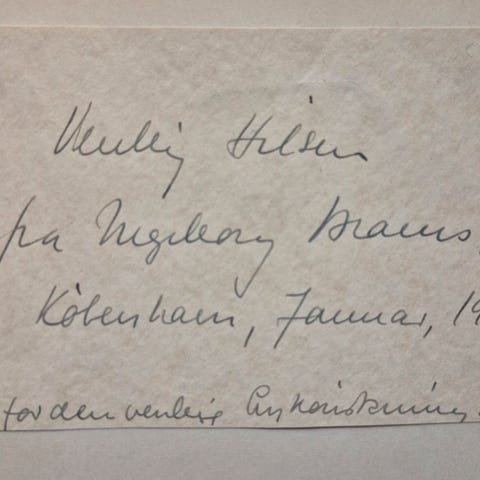 Venlig Hilsen
fra Ingeborg Brams.
København, Januar, 19
for den venlige Lykønskning.